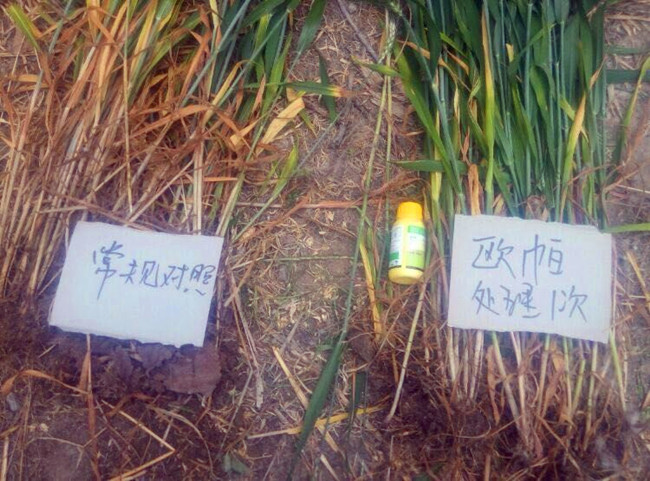 常规对照
欧帕
处理1次